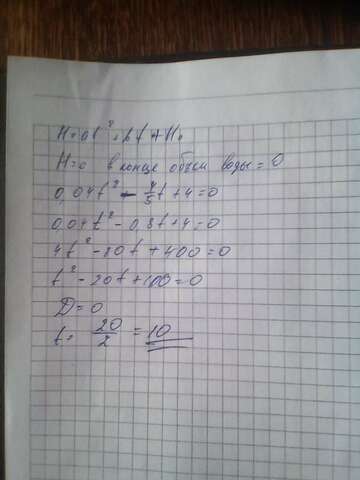 H=at²+bt+H₀
H=0 в конце объем воды = 0
0,04t² - 4/5t+4=0
0,04t²-0,8t+4=0
4t²-80t+400=0
t²-20t+100=0
D=0
t= 20/2 = 10